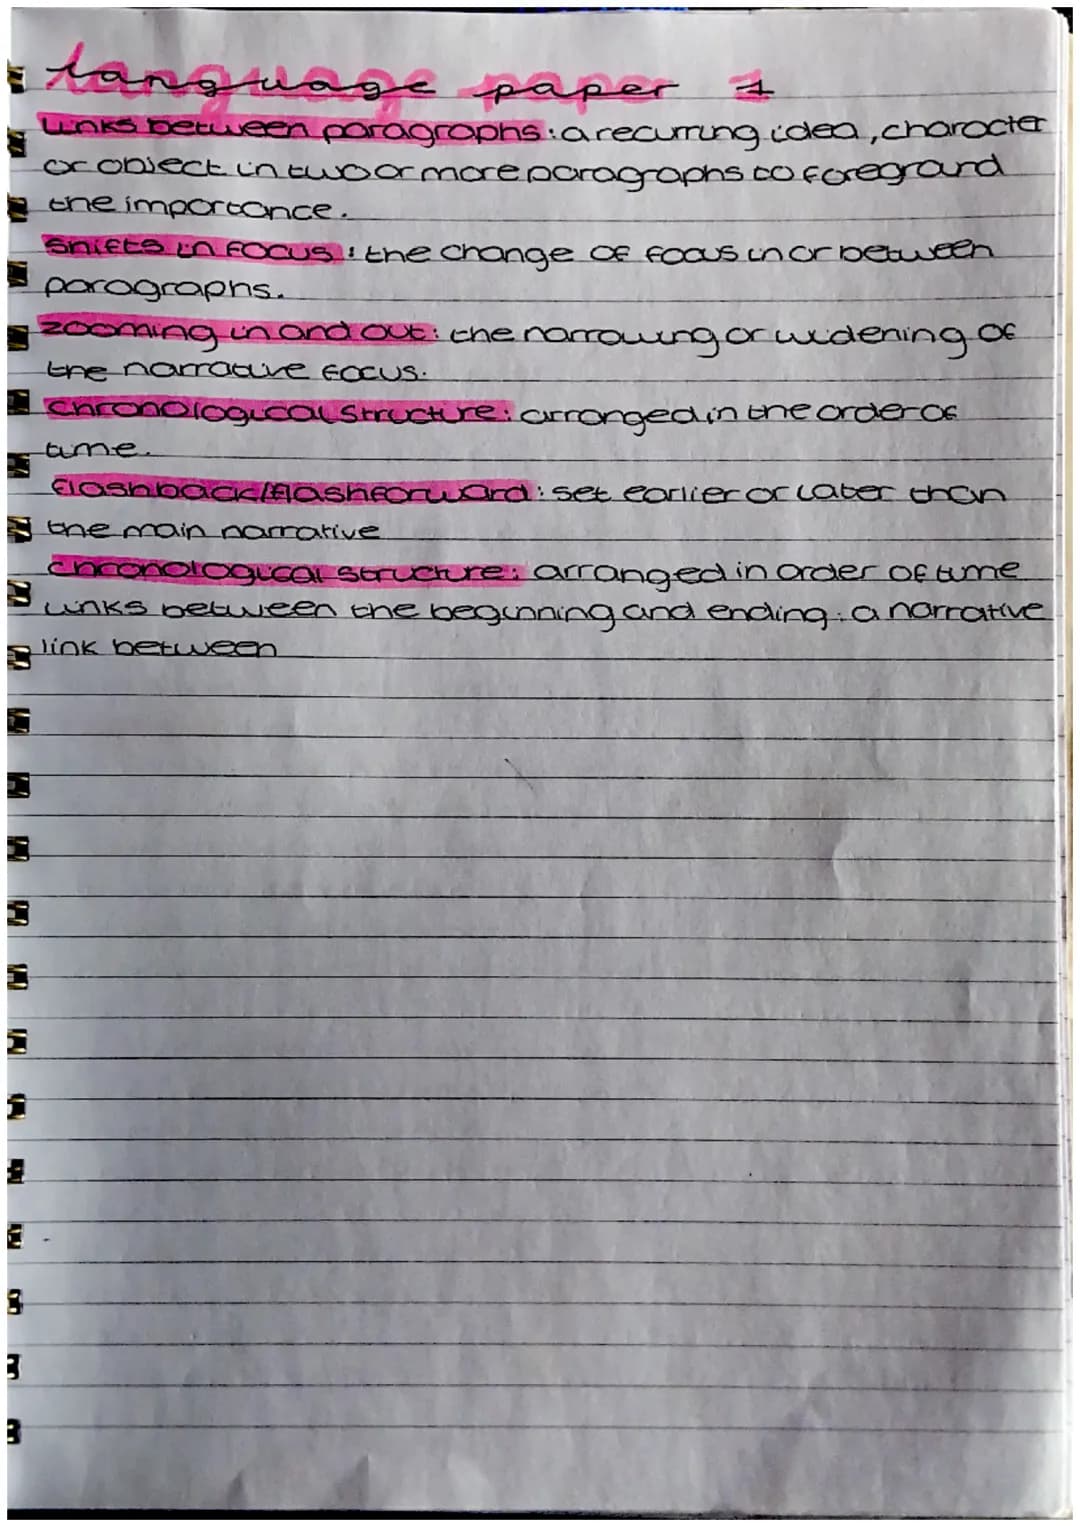 language paper 1
Links between paragraphs: a recurring idea, character
or object in two or more paragraphs to foregrand
the importance.
Shifts in focus: the change of focus in or between
paragraphs.
zooming in and out: the narrowing or widening of
the narrative focus.
Chronological structure: arranged in the order of
time.
flashback/flashforward: set earlier or later than
the main narrative
chronological structure: arranged in order of time
Links between the beginning and ending: a narrative
link between